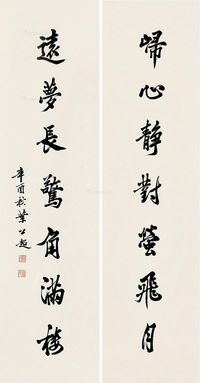 歸心靜對螢飛月
遠夢長驚角滿樓
辛酉秋葉公超